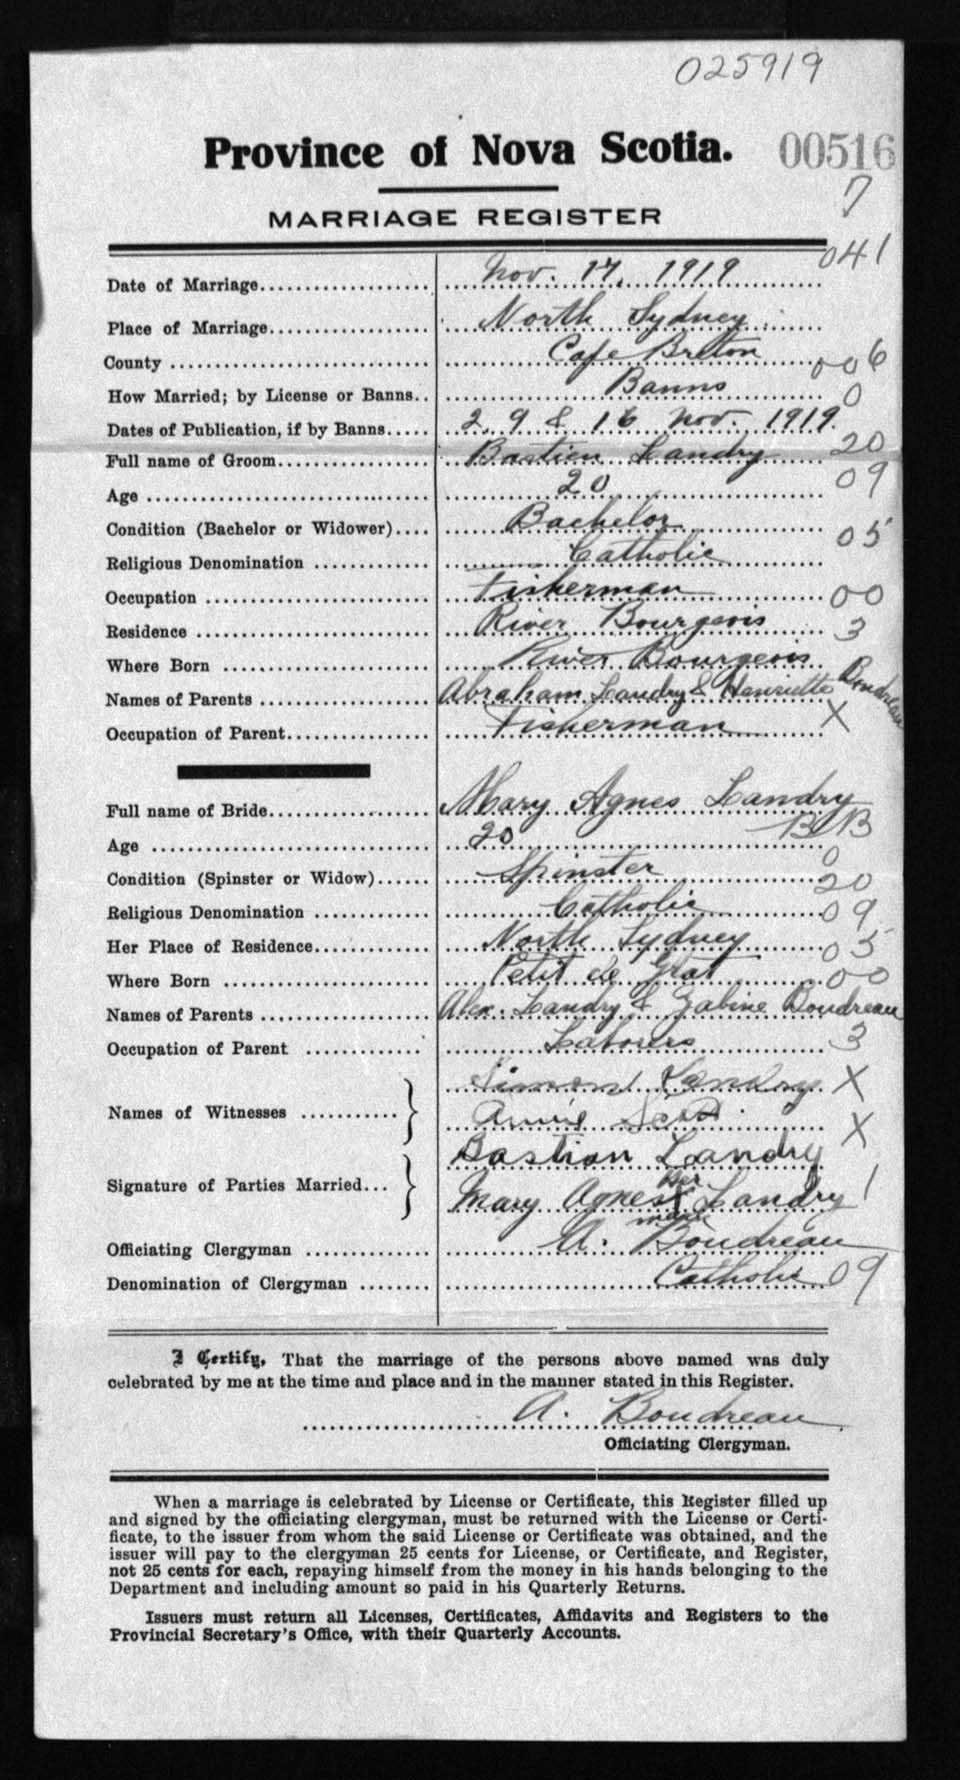 025919
Province of Nova Scotia. 00516
7
MARRIAGE REGISTER
041
Date of Marriage Nov. 17, 1919
Place of Marriage North Sydney
County Cape Breton 006
How Married; by License or Banns.. Banns 0
Dates of Publication, if by Banns 2, 9 & 16 Nov. 1919.
Full name of Groom Bastien Landry 20
Age 20 09
Condition (Bachelor or Widower) Bachelor
Religious Denomination Catholic 05
Occupation Fisherman 00
Residence River Bourgeois 3
Where Born River Bourgeois
Names of Parents Abraham Landry & Henriette Boudreau
Occupation of Parent Fisherman X
Full name of Bride Mary Agnes Landry
Age 20 BB
Condition (Spinster or Widow) Spinster 0
20
Religious Denomination Catholic 09
Her Place of Residence North Sydney 05
Where Born Petit de Grat 00
Names of Parents Alex. Landry & Zabine Boudreau
Occupation of Parent Laborers 3
Names of Witnesses Simon Landry X
Annie X
Signature of Parties Married Bastian Landry
her
Mary Agnes X Landry 1
mark
Officiating Clergyman A. Boudreau
Denomination of Clergyman Catholic 09
I Certify, That the marriage of the persons above named was duly
celebrated by me at the time and place and in the manner stated in this Register.
A. Boudreau
Officiating Clergyman.
When a marriage is celebrated by License or Certificate, this Register filled up
and signed by the officiating clergyman, must be returned with the License or Certi-
ficate, to the issuer from whom the said License or Certificate was obtained, and the
issuer will pay to the clergyman 25 cents for License, or Certificate, and Register,
not 25 cents for each, repaying himself from the money in his hands belonging to the
Department and including amount so paid in his Quarterly Returns.
Issuers must return all Licenses, Certificates, Affidavits and Registers to the
Provincial Secretary's Office, with their Quarterly Accounts.